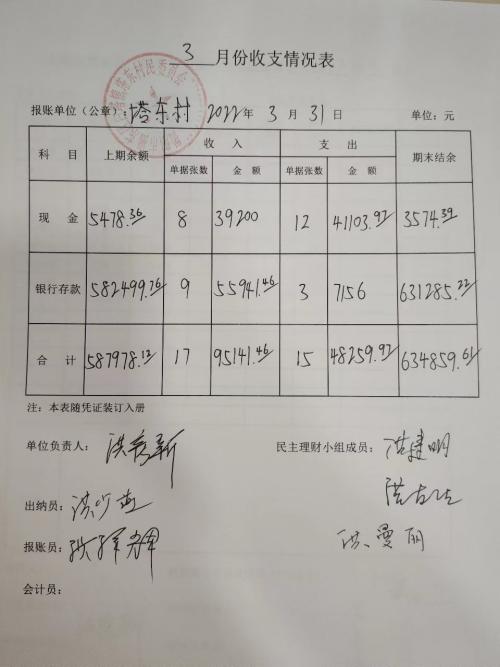 3月份收支情况表
塔东村民委员会
报账单位（公章）：塔东村 2022年 3月 31日 单位：元
科 目 上期余额 收 入 支 出 期末结余
单据张数 金 额 单据张数 金 额
现 金 5478.36 8 39200 12 41103.97 3574.39
银行存款 582499.76 9 55941.46 3 7156 631285.22
合 计 587978.12 17 95141.46 15 48259.97 634859.61
注：本表随凭证装订入册
单位负责人： 民主理财小组成员：洪建明
出纳员：
报账员： 洪曼丽
会计员：